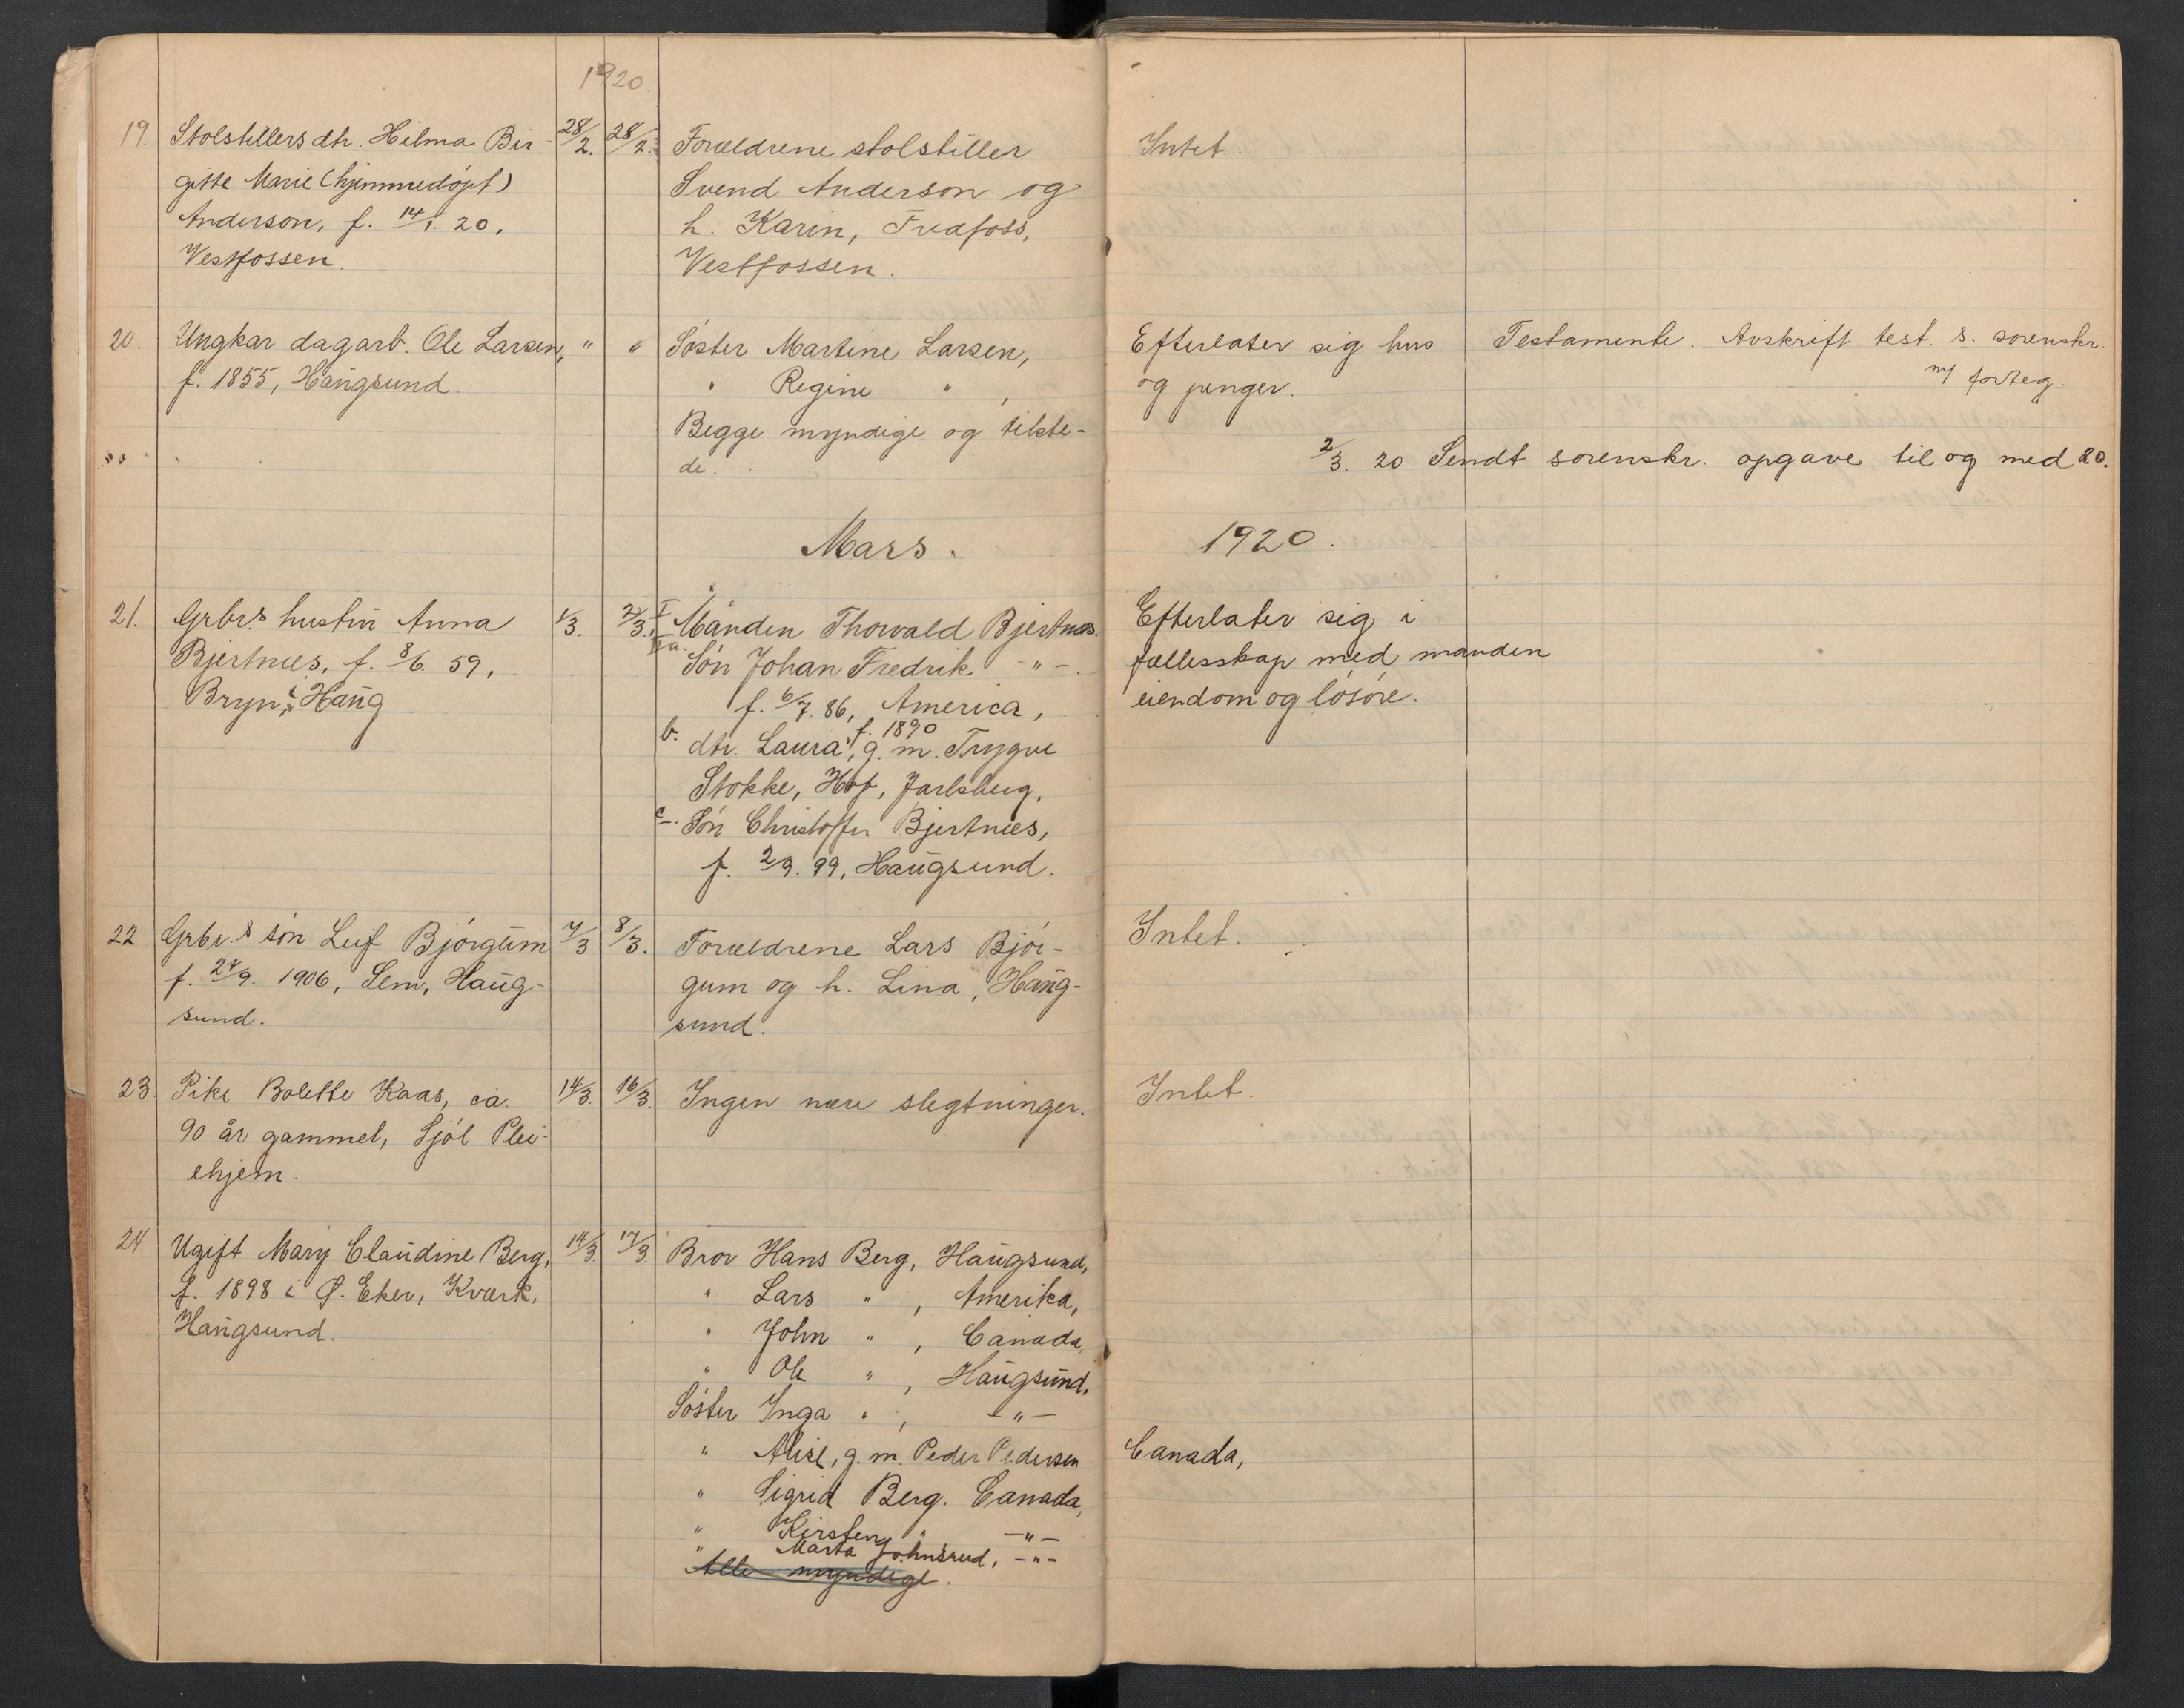 1920.
19. Stolstillers dtr. Hilma Bir- 28/2. 28/2. Forældrene stolstiller Intet.
gitte Marie (hjemmedøpt) Svend Anderson og
Anderson, f. 14/1. 20, h. Karin, Fredfoss,
Vestfossen. Vestfossen.
20. Ungkar dagarb. Ole Larsen, " " Søster Martine Larsen, Efterlater sig hus Testamente. Avskrift test. s. sorenskr.
f. 1855, Haugsund. " Regine " , og penger. m/ forteg.
Begge myndige og tilste-
de.
2/3. 20 Sendt sorenskr. opgave til og med 20.
Mars. 1920.
21. Grbr.s hustru Anna 1/3. 2/3. I Manden Thorvald Bjertnæs. Efterlater sig i
Bjertnæs, f. 8/6 59, a. Søn Johan Fredrik -"-. fællesskap med manden
Bryn, i Haug f. 6/7. 86, America, eiendom og løsøre.
b. dtr. Laura, f. 1890, g. m. Trygve
Stokke, Hof, Jarlsberg,
c. Søn Christoffer Bjertnæs,
f. 2/9. 99, Haugsund.
22 Grbr.s søn Leif Bjørgum 7/3 8/3. Forældrene Lars Bjør- Intet.
f. 24/9. 1906, Sem, Haug- gum og h. Lina, Haug-
sund. sund.
23. Pike Bolette Kaas, ca. 14/3. 16/3. Ingen nære slegtninger. Intet.
90 år gammel, Sjøl Plei-
ehjem.
24. Ugift Mary Claudine Berg, 14/3. 17/3. Bror Hans Berg, Haugsund,
f. 1898 i Ø. Eker, Kværk, " Lars " , Amerika,
Haugsund. " John " , Canada,
" Ole " , Haugsund,
Søster Inga " , -"-
" Alise, g. m. Peder Pedersen Canada,
" Sigrid Berg. Canada,
" Kirsten " -"-
" Marta Johnsrud, -"-
Alle myndige.